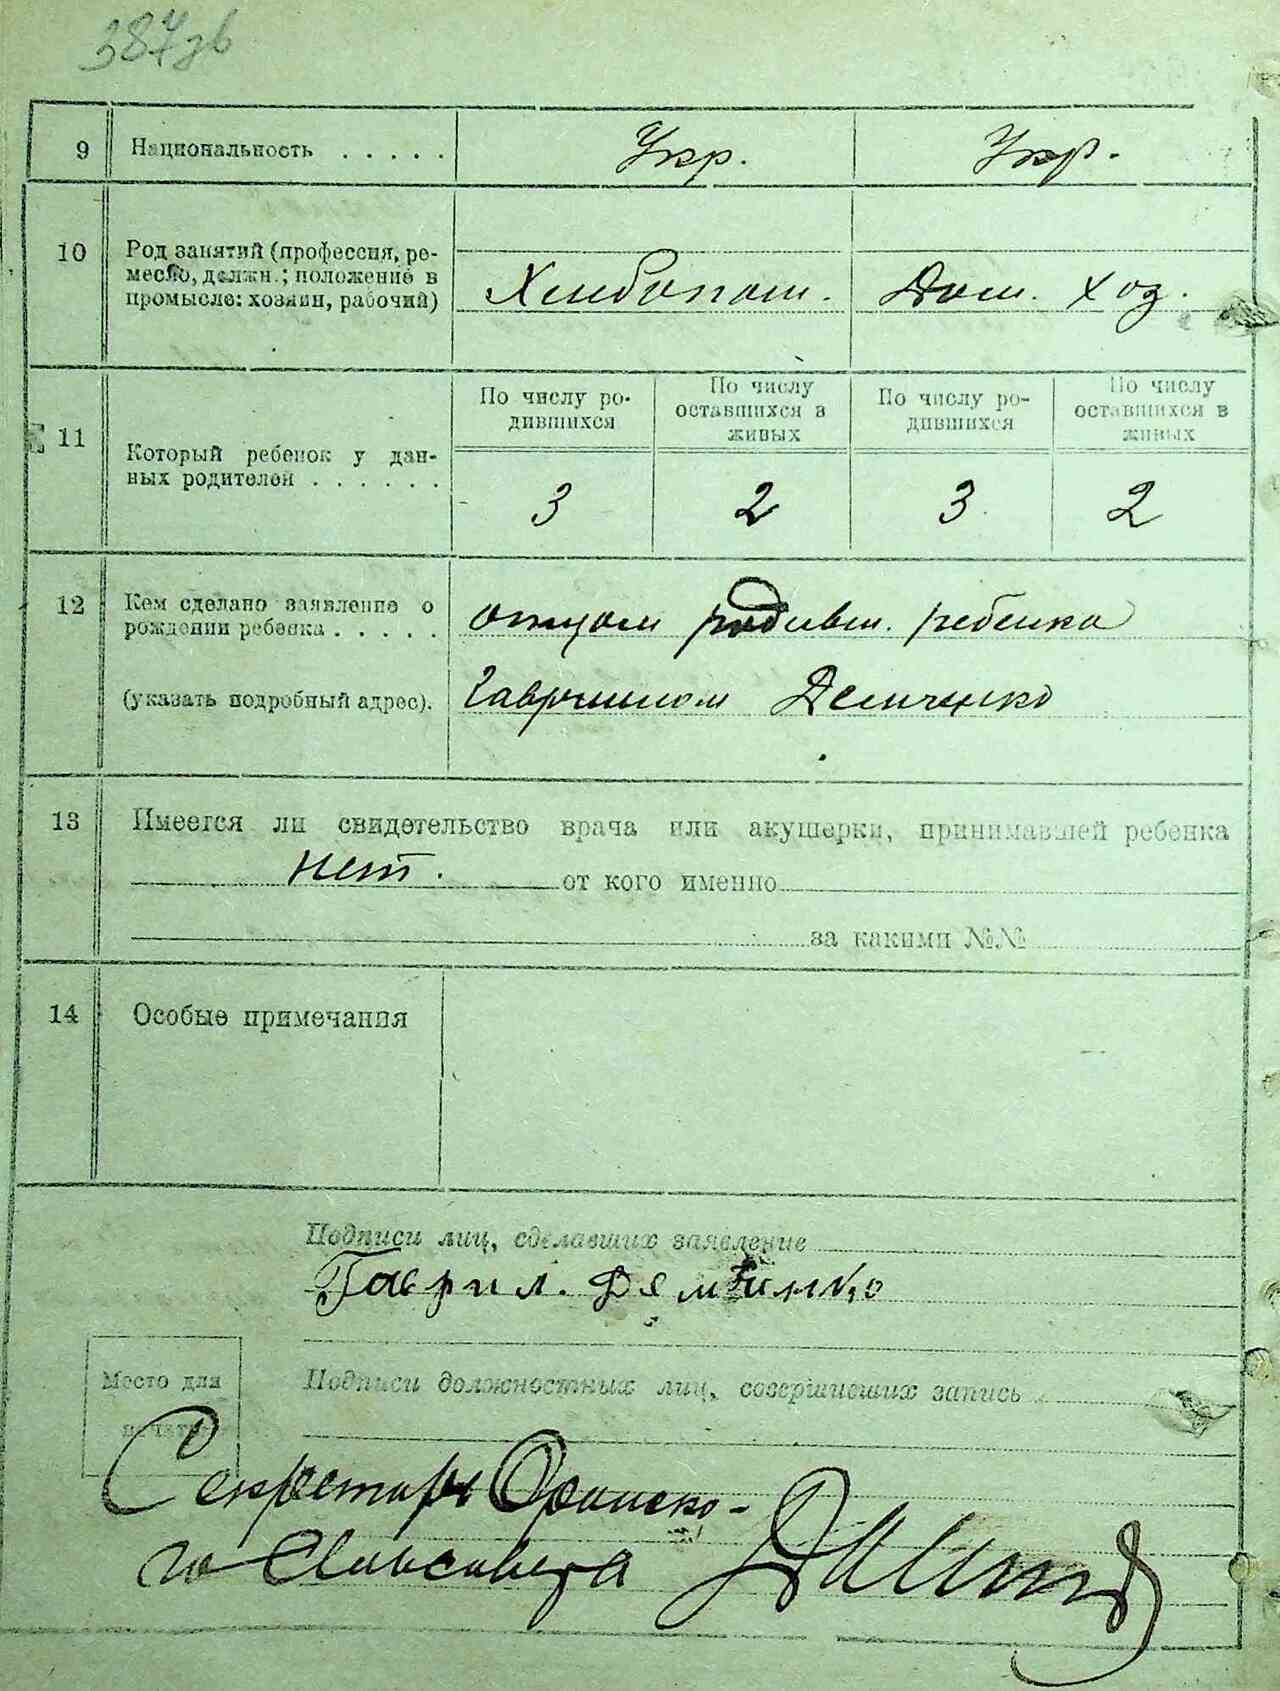 387зв
9 Национальность . . . . . Укр. Укр.
10 Род занятий (профессия, ре-
месло, должн.; положение в
промысле: хозяин, рабочий)
Хлебопаш. Дом. хоз.
По числу ро-
дившихся
По числу
оставшихся в
живых
По числу ро-
дившихся
По числу
оставшихся в
живых
11 Который ребенок у дан-
ных родителей . . . . . .
3 2 3 2
12 Кем сделано заявление о
рождении ребенка . . . . .
(указать подробный адрес).
отцом родивш. ребенка
Гавриилом Демченко
13 Имеется ли свидетельство врача или акушерки, принимавшей ребенка
нет. от кого именно
за какими №№
14 Особые примечания
Подписи лиц, сделавших заявление
Гаврил. Демченко
Место для
печати
Подписи должностных лиц, совершивших запись
Секретарь
го сельсовета